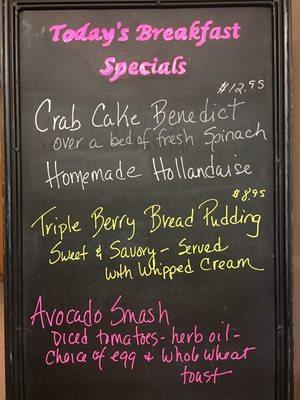 Today's Breakfast
Specials
$12.95
Crab Cake Benedict
over a bed of fresh Spinach
Homemade Hollandaise
$8.95
Triple Berry Bread Pudding
Sweet & Savory - Served
with Whipped Cream
Avocado Smash
Diced tomatoes - herb oil -
Choice of egg & whole wheat
toast